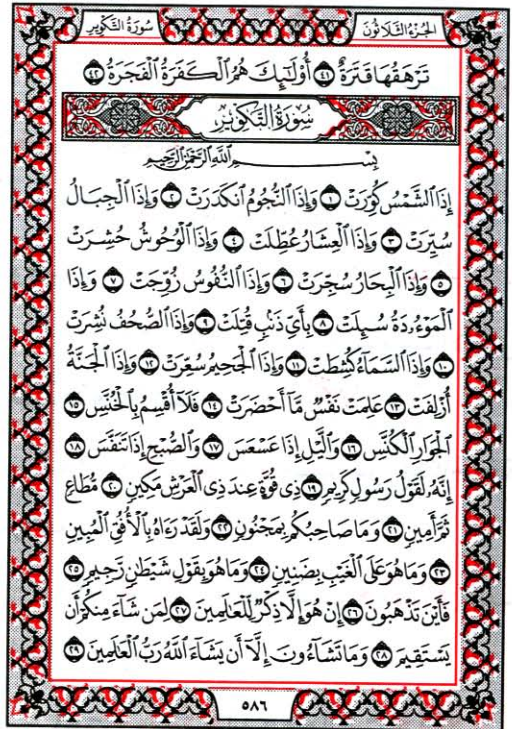 سُورَةُ التَّكْوِيرِ الجُزْءُ الثَّلَاثُونَ
تَرْهَقُهَا قَتَرَةٌ ٤١ أُوْلَٰٓئِكَ هُمُ ٱلْكَفَرَةُ ٱلْفَجَرَةُ ٤٢
سُورَةُ التَّكْوِيرِ
بِسْمِ ٱللَّهِ ٱلرَّحْمَٰنِ ٱلرَّحِيمِ
إِذَا ٱلشَّمْسُ كُوِّرَتْ ١ وَإِذَا ٱلنُّجُومُ ٱنكَدَرَتْ ٢ وَإِذَا ٱلْجِبَالُ
سُيِّرَتْ ٣ وَإِذَا ٱلْعِشَارُ عُطِّلَتْ ٤ وَإِذَا ٱلْوُحُوشُ حُشِرَتْ
٥ وَإِذَا ٱلْبِحَارُ سُجِّرَتْ ٦ وَإِذَا ٱلنُّفُوسُ زُوِّجَتْ ٧ وَإِذَا
ٱلْمَوْءُۥدَةُ سُئِلَتْ ٨ بِأَيِّ ذَنۢبٍ قُتِلَتْ ٩ وَإِذَا ٱلصُّحُفُ نُشِرَتْ
١٠ وَإِذَا ٱلسَّمَآءُ كُشِطَتْ ١١ وَإِذَا ٱلْجَحِيمُ سُعِّرَتْ ١٢ وَإِذَا ٱلْجَنَّةُ
أُزْلِفَتْ ١٣ عَلِمَتْ نَفْسٌ مَّآ أَحْضَرَتْ ١٤ فَلَآ أُقْسِمُ بِٱلْخُنَّسِ ١٥
ٱلْجَوَارِ ٱلْكُنَّسِ ١٦ وَٱلَّيْلِ إِذَا عَسْعَسَ ١٧ وَٱلصُّبْحِ إِذَا تَنَفَّسَ ١٨
إِنَّهُۥ لَقَوْلُ رَسُولٍ كَرِيمٍ ١٩ ذِى قُوَّةٍ عِندَ ذِى ٱلْعَرْشِ مَكِينٍ ٢٠ مُّطَاعٍ
ثَمَّ أَمِينٍ ٢١ وَمَا صَاحِبُكُم بِمَجْنُونٍ ٢٢ وَلَقَدْ رَءَاهُ بِٱلْأُفُقِ ٱلْمُبِينِ
٢٣ وَمَا هُوَ عَلَى ٱلْغَيْبِ بِضَنِينٍ ٢٤ وَمَا هُوَ بِقَوْلِ شَيْطَٰنٍ رَّجِيمٍ ٢٥
فَأَيْنَ تَذْهَبُونَ ٢٦ إِنْ هُوَ إِلَّا ذِكْرٌ لِّلْعَٰلَمِينَ ٢٧ لِمَن شَآءَ مِنكُمْ أَن
يَسْتَقِيمَ ٢٨ وَمَا تَشَآءُونَ إِلَّآ أَن يَشَآءَ ٱللَّهُ رَبُّ ٱلْعَٰلَمِينَ ٢٩
٥٨٦